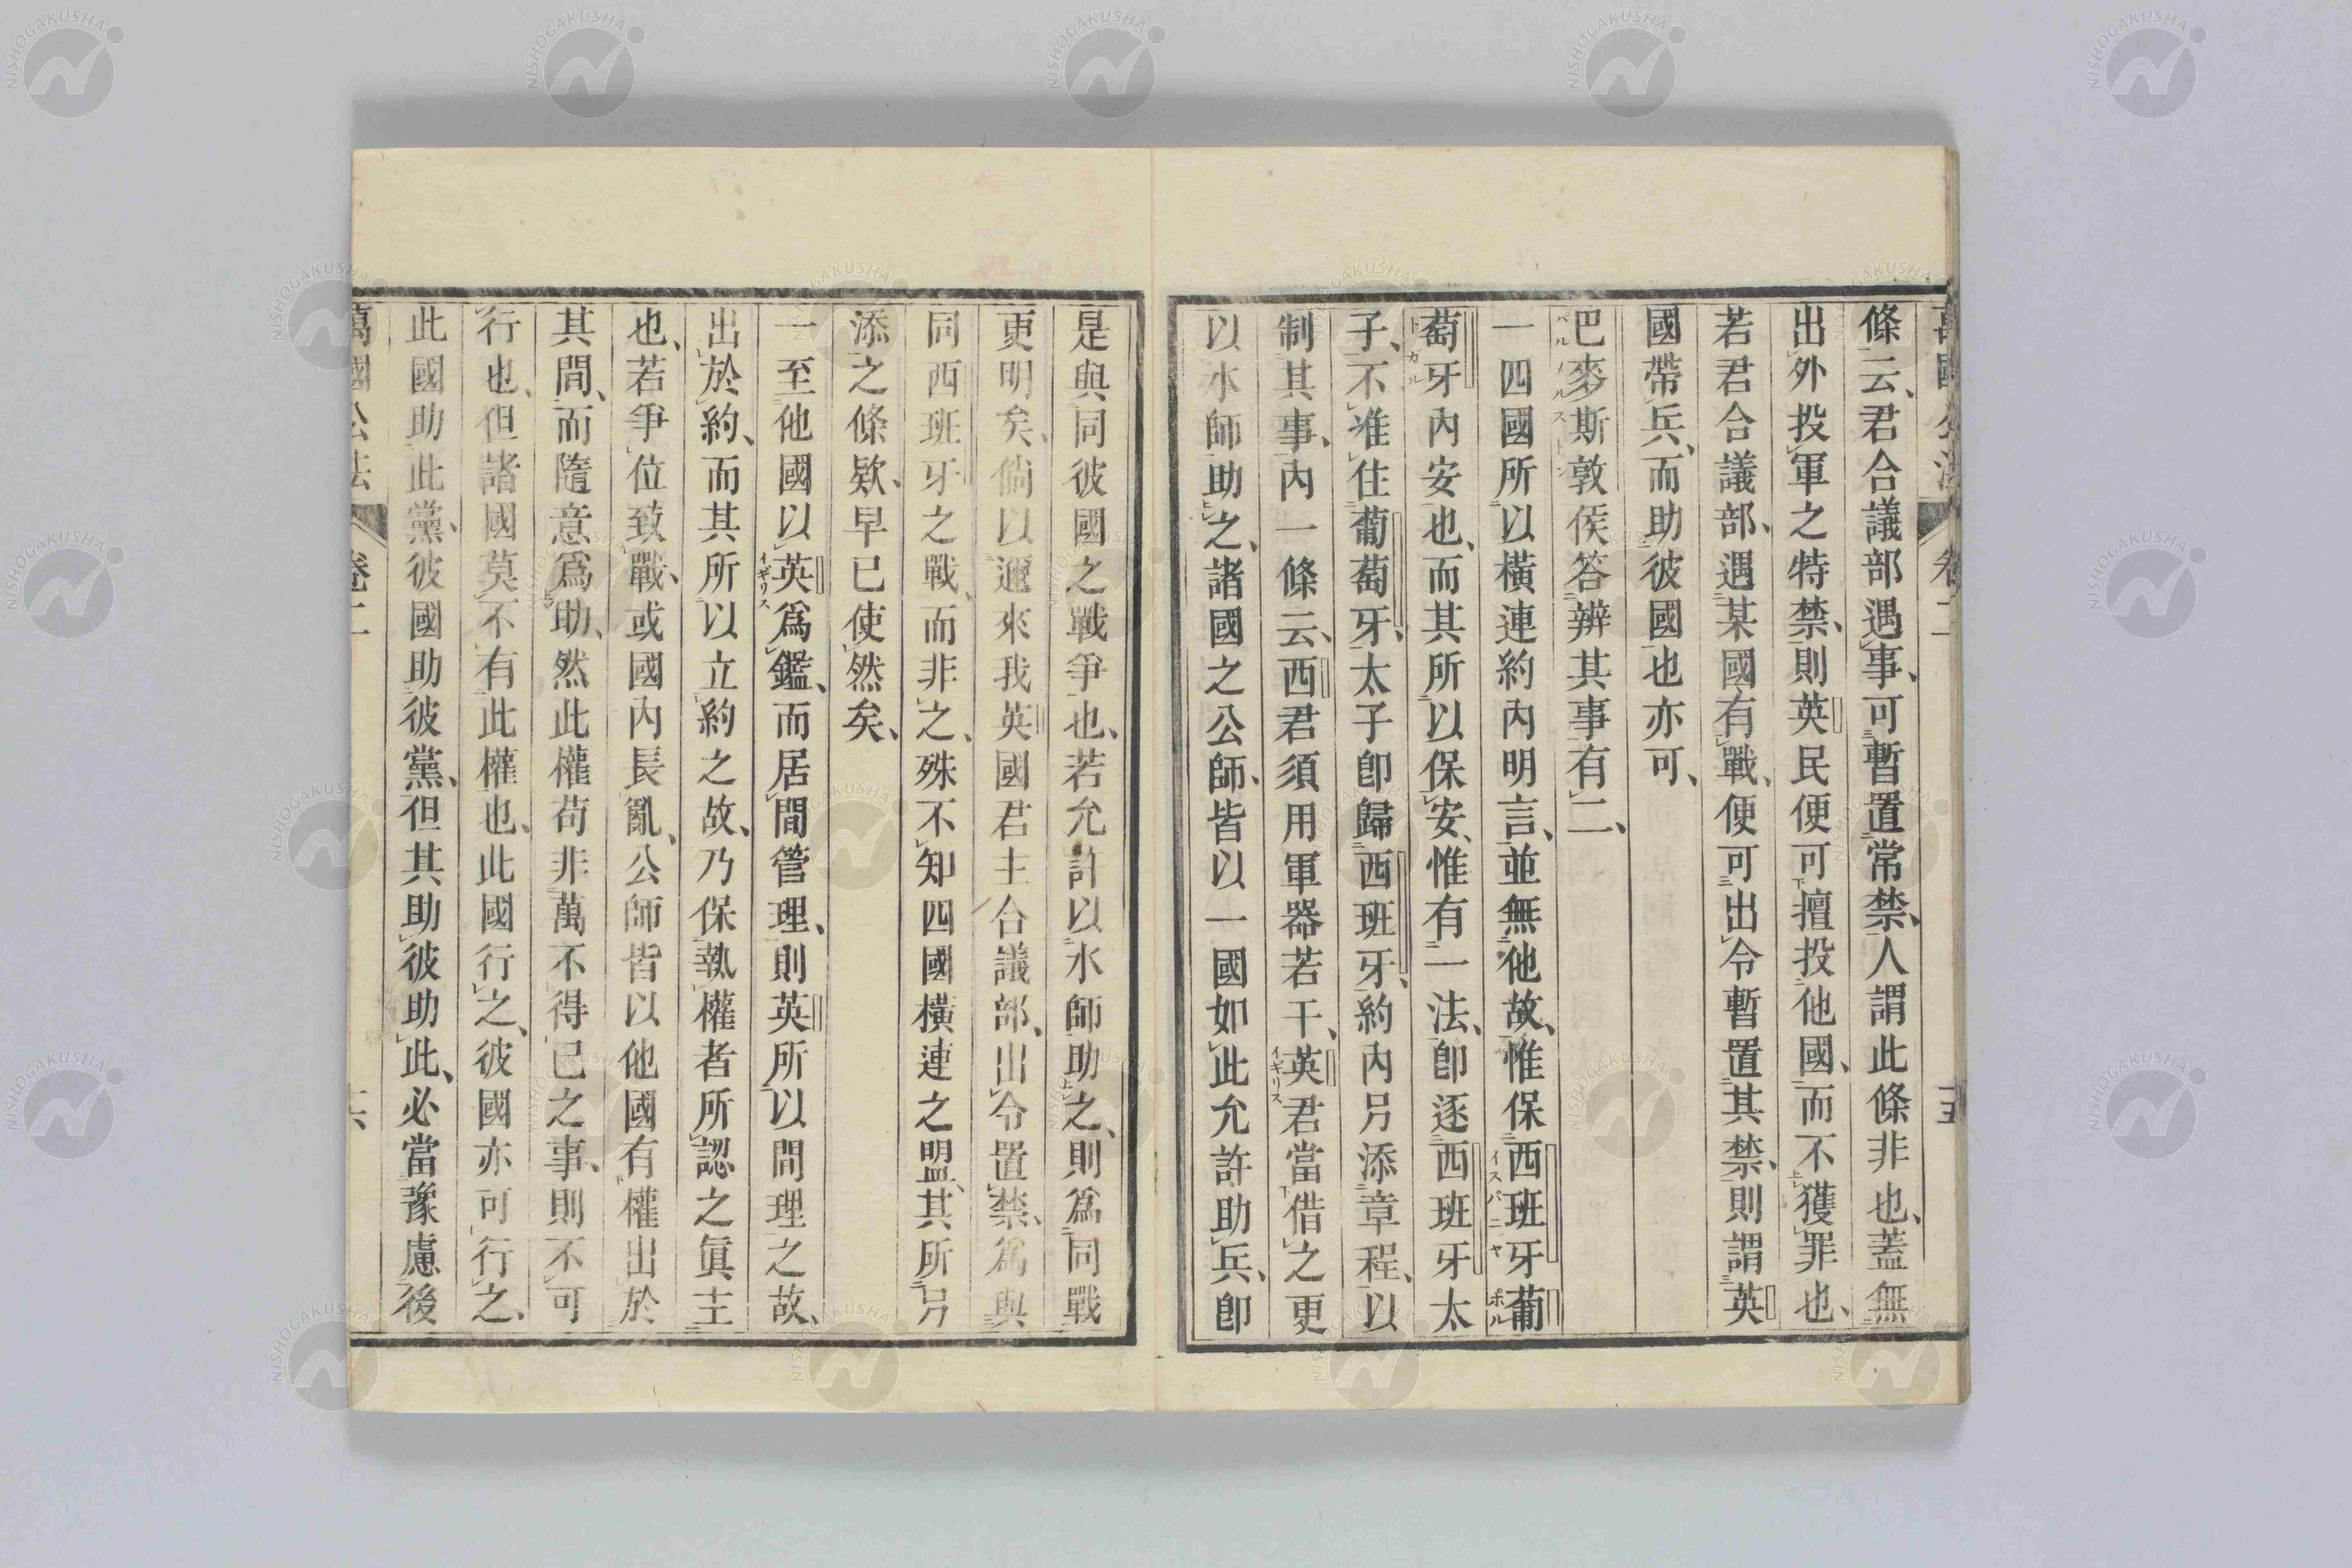 萬國公法 卷二 五
條云、君合議部遇事、可暫置常禁、人謂此條非也、蓋無
出外投軍之特禁、則英民便可擅投他國、而不獲罪也、
若君合議部、遇某國有戰、便可出令暫置其禁、則謂英
國帶兵、而助彼國也亦可、
巴麥斯敦侯答辨其事有二、
一四國所以橫連約內明言、並無他故、惟保西班牙葡
萄牙內安也、而其所以保安、惟有一法、卽逐西班牙太
子、不准住葡萄牙、太子卽歸西班牙、約內另添章程、以
制其事、內一條云、西君須用軍器若干、英君當借之更
以水師助之、諸國之公師、皆以一國如此允許助兵、卽
是與同彼國之戰爭也、若允許以水師助之、則爲同戰
更明矣、倘以邇來我英國君主合議部、出令置禁、爲與
同西班牙之戰、而非之、殊不知四國橫連之盟、其所另
添之條款、早已使然矣、
一至他國以英爲鑑、而居間管理、則英所以問理之故、
出於約、而其所以立約之故、乃保執權者所認之眞主
也、若爭位致戰、或國內長亂、公師皆以他國有權出於
其間、而隨意爲助、然此權苟非萬不得已之事、則不可
行也、但諸國莫不有此權也、此國行之、彼國亦可行之、
此國助此黨、彼國助彼黨、但其助彼助此、必當豫慮後
萬國公法 卷二 六
イギリス
イスパニヤ
ポル
トガル
イギリス